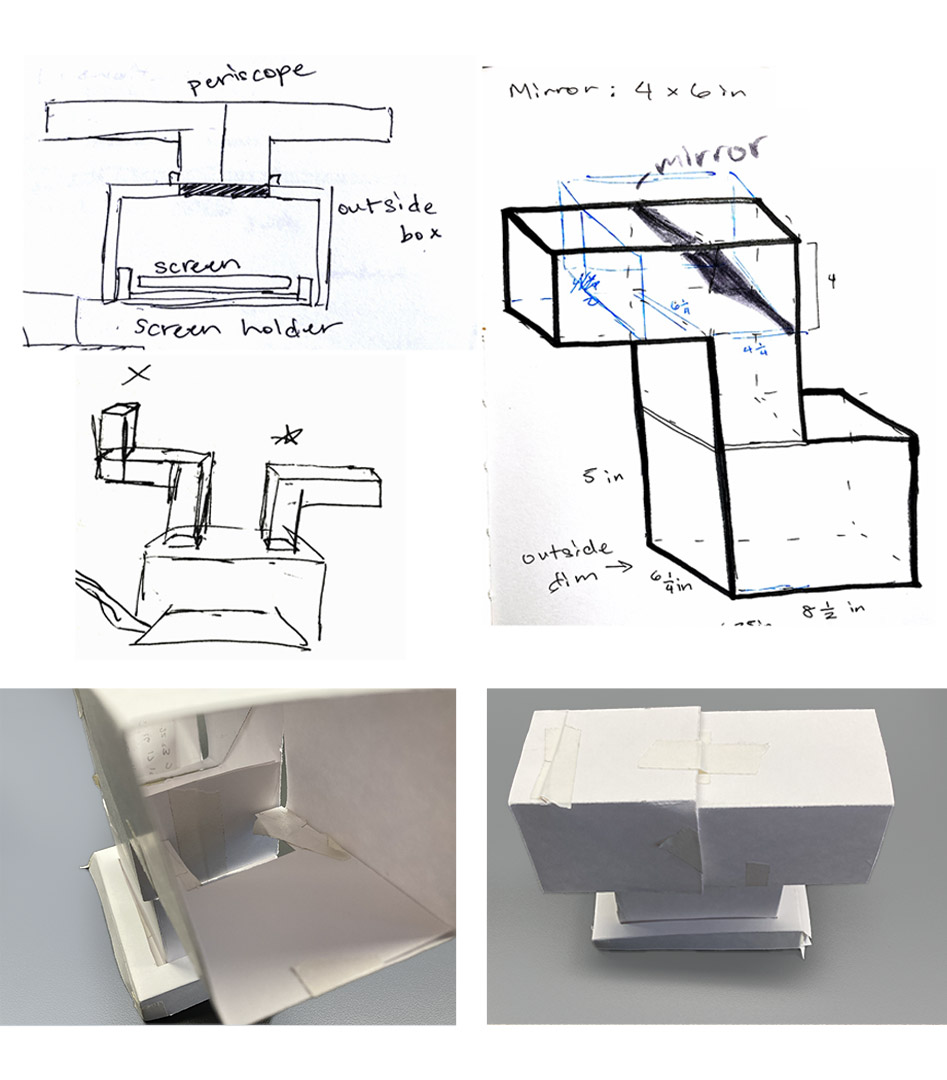 periscope
outside
box
screen
screen holder
X
Mirror : 4 x 6 in
mirror
4
6 1/4
4 1/4
5 in
outside
dim →
6 1/4 in
8 1/2 in